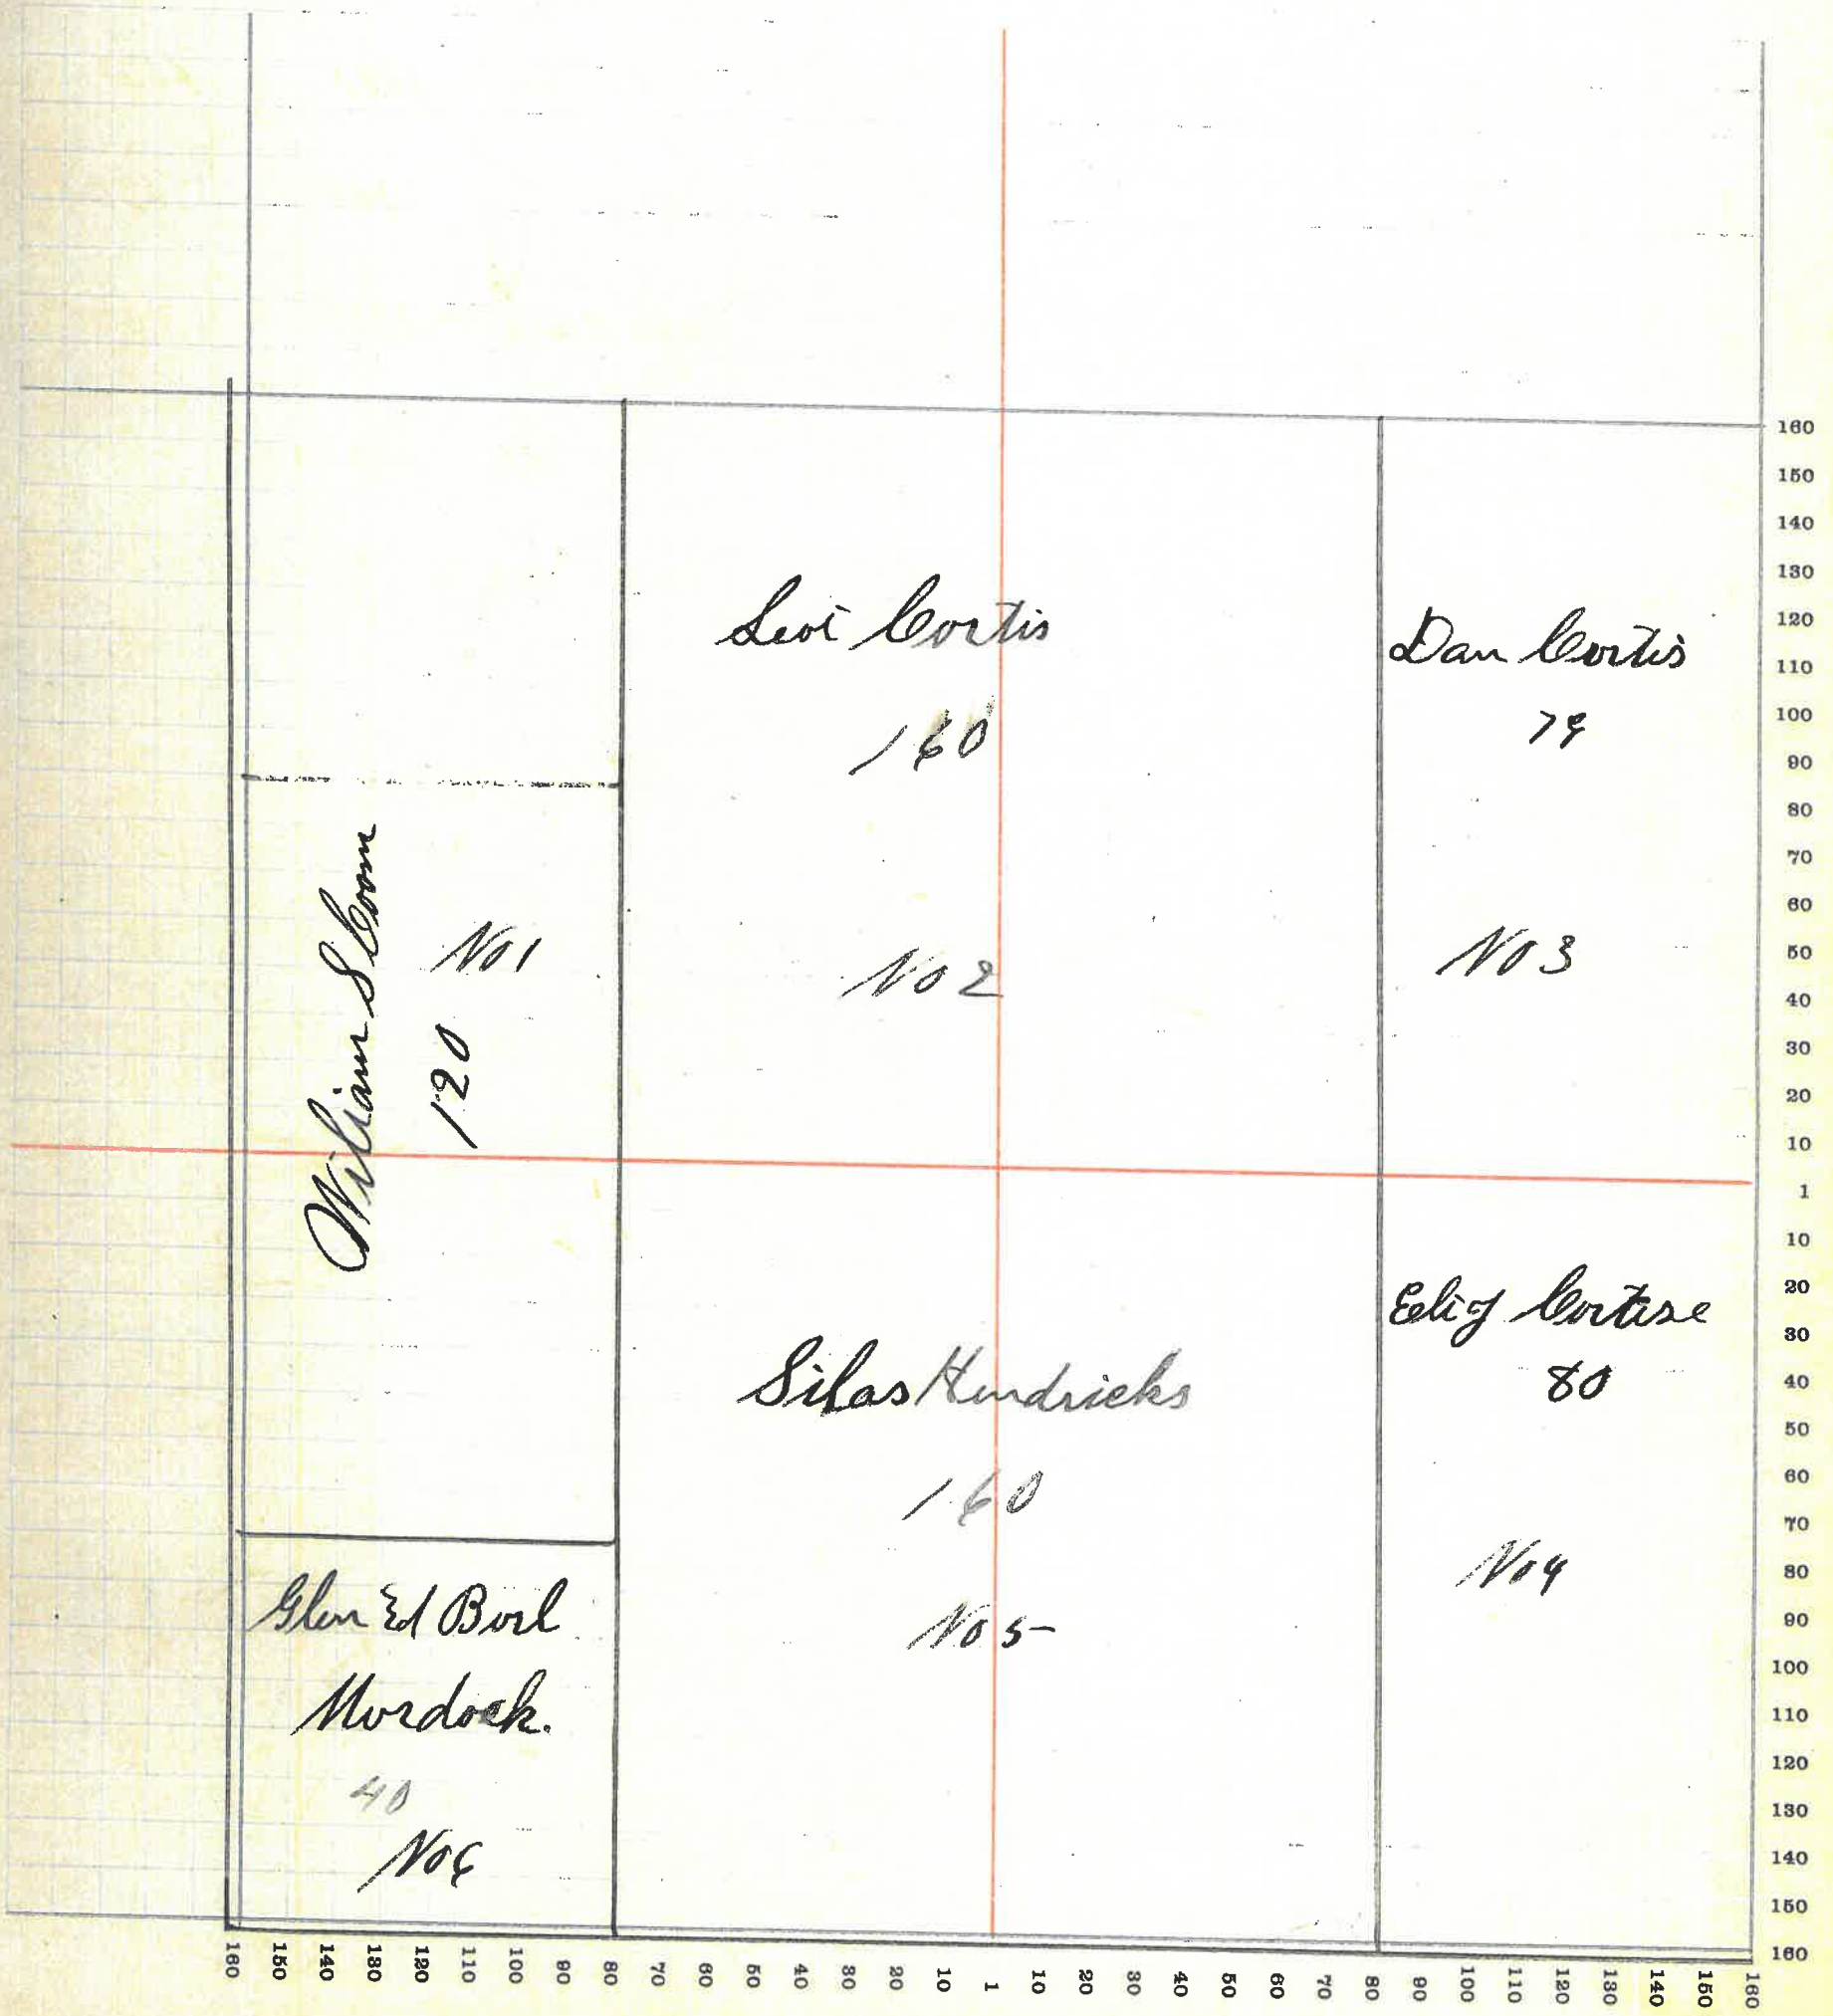 Levi Cortis
160
No 2
Dan Cortis
79
No 3
William S Coom
No 1
120
Silas Hendricks
160
No 5
Elij Cortise
80
No 4
Glen Ed Burl
Murdock.
40
No 6
160
150
140
130
120
110
100
90
80
70
60
50
40
30
20
10
1
10
20
30
40
50
60
70
80
90
100
110
120
130
140
150
160
160 150 140 130 120 110 100 90 80 70 60 50 40 30 20 10 1 10 20 30 40 50 60 70 80 90 100 110 120 130 140 150 160